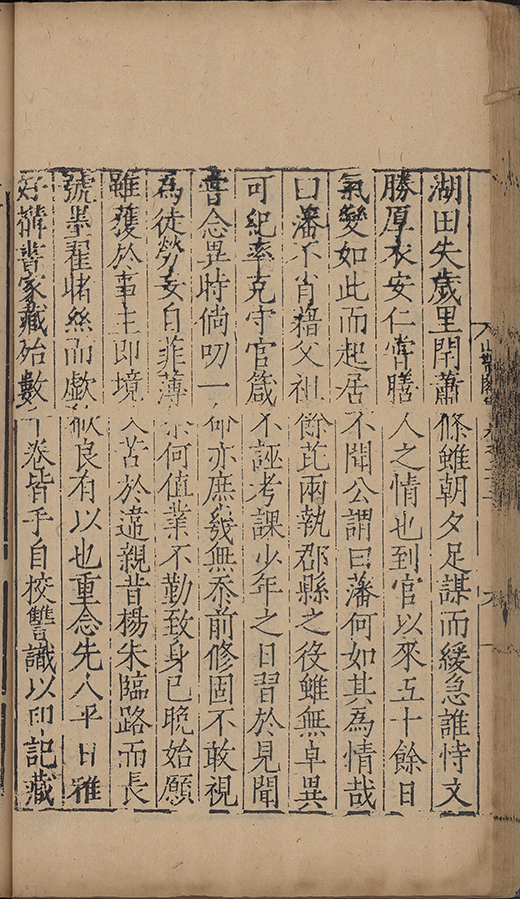 湖田失歲里閈蕭條雖朝夕足謀而緩急誰恃文
勝厚衣安仁嘗膳人之情也到官以來五十餘日
氣變如此而起居不聞公謂曰藩何如其為情哉
曰藩不肖藉父祖餘芘兩執郡縣之役雖無卓異
可紀率克守官箴不誣考課少年之日習於見聞
嘗念異時倘叨一命亦庶幾無忝前修固不敢視
為徒勞妄自菲薄柰何值業不勤致身已晚始願
雖獲於事主即境又苦於違親昔楊朱臨路而長
號墨翟睹絲而歔欷良有以也重念先人平日雅
好蓄書家藏殆數千卷皆手自校讐識以印記藏